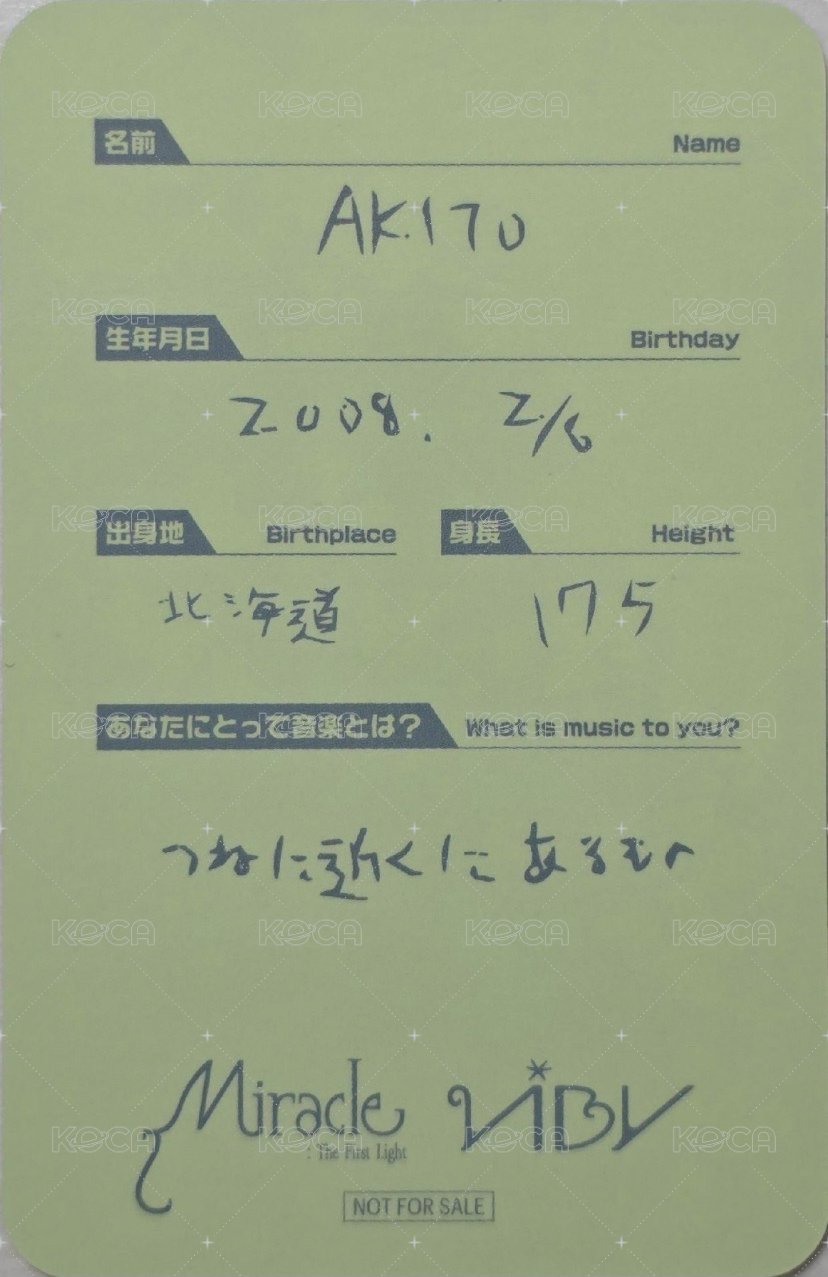 名前 Name
AKITO
生年月日 Birthday
2008. 2/6
出身地 Birthplace 身長 Height
北海道 175
あなたにとって音楽とは? What is music to you?
つねに近くにあるもの
Miracle
: The First Light
NOT FOR SALE
KOCA